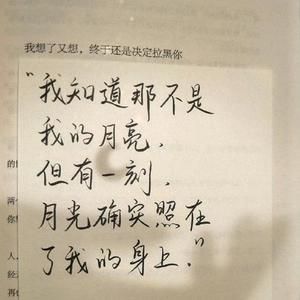 我想了又想，终于还是决定拉黑你
“我知道那不是
我的月亮，
但有一刻，
月光确实照在
了我的身上.”